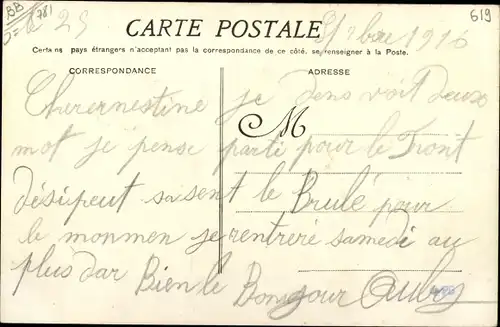 BB 781
619
25
CARTE POSTALE
7bre 1916
Certains pays étrangers n'acceptant pas la correspondance de ce côté, se renseigner à la Poste.
CORRESPONDANCE
ADRESSE
M
Cherernestine je voit deux
mot je pense parti pour le Front
sa sent le Brulé pour
le monmen je rentreré samedi au
plus dar Bien le Bonjour Aubry